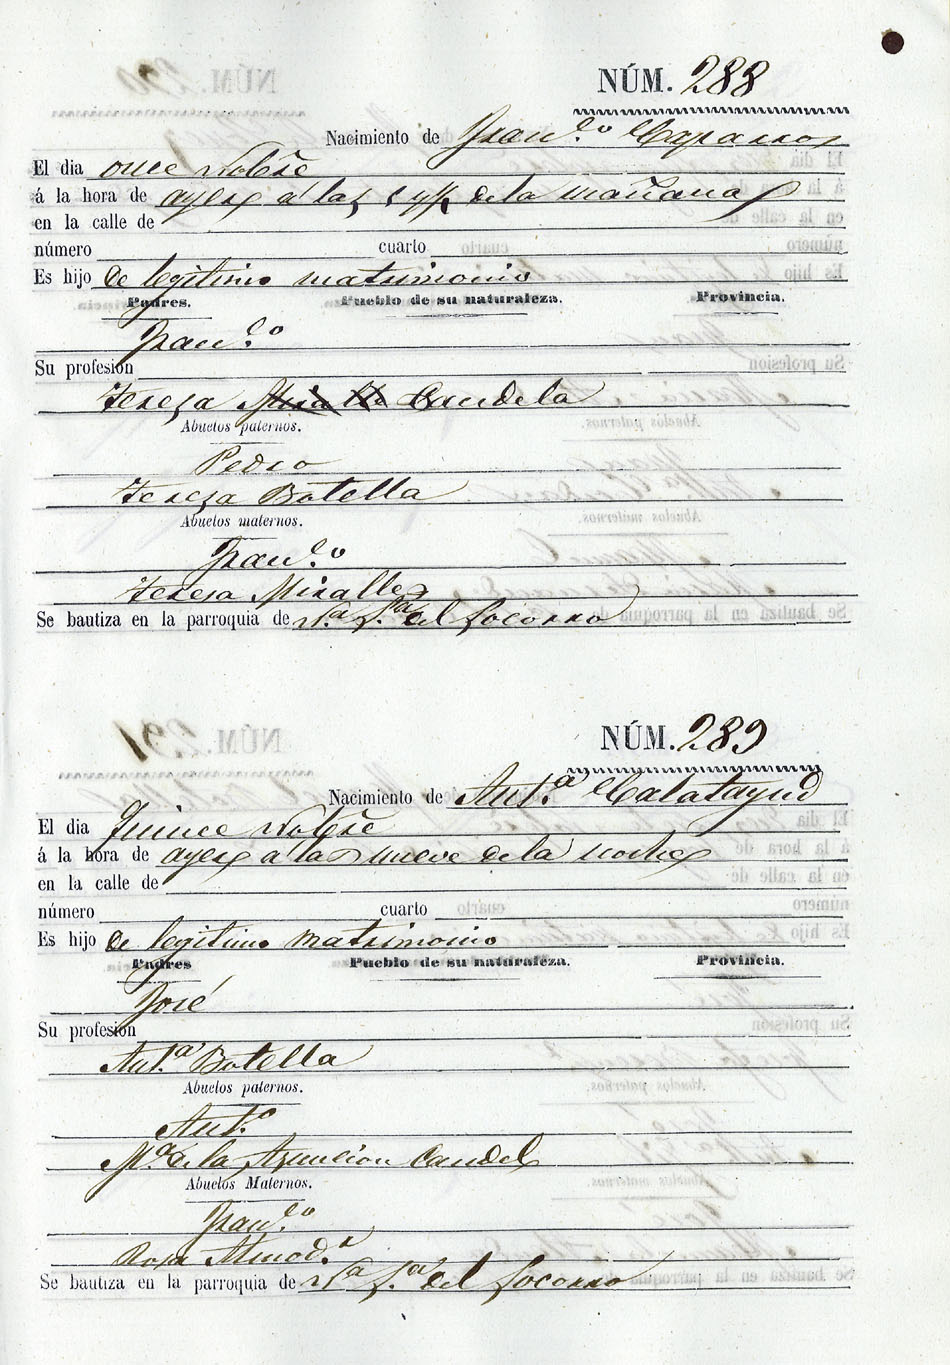 NÚM. 288
Nacimiento de Fran.co Caparros
El dia once Nobre
á la hora de ayer á las y de la mañana
en la calle de
número cuarto
Es hijo de legitimo matrimonio
Padres. Pueblo de su naturaleza. Provincia.
Fran.co
Su profesión
Teresa Miralles Candela
Abuelos paternos.
Pedro
Teresa Botella
Abuelos maternos.
Fran.co
Teresa Miralles
Se bautiza en la parroquia de N.a S.a del Socorro
NÚM. 289
Nacimiento de Ant.a Calatayud
El dia Quince Nobre
á la hora de ayer a las nueve de la noche
en la calle de
número cuarto
Es hijo de legitimo matrimonio
Padres Pueblo de su naturaleza. Provincia.
José
Su profesión
Ant.a Botella
Abuelos paternos.
Ant.o
M.a de la Asuncion Candela
Abuelos Maternos.
Fran.co
Rosa Almod.r
Se bautiza en la parroquia de N.a S.a del Socorro